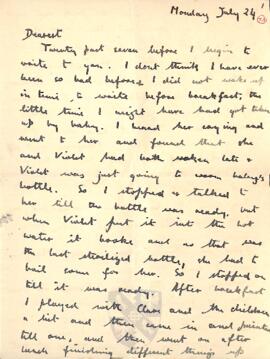 Monday July 24
Dearest
Twenty past seven before I begin to
write to you. I dont think I have ever
been so bad before, I did not wake up
in time to write before breakfast, the
little time I might have had got taken
up by baby. I heard her crying and
went to her and found that she
and Violet had both woken late &
Violet was just going to warm baby's
bottle. So I stopped & talked to
her till the bottle was ready, but
when Violet put it into the hot
water it broke and as that was
the last sterilized bottle, she had to
boil some for her. So I stopped on
till it was ready. After breakfast
I played with Clare and the children
a bit and then came in and
till one, and then went on after
lunch finishing different things up